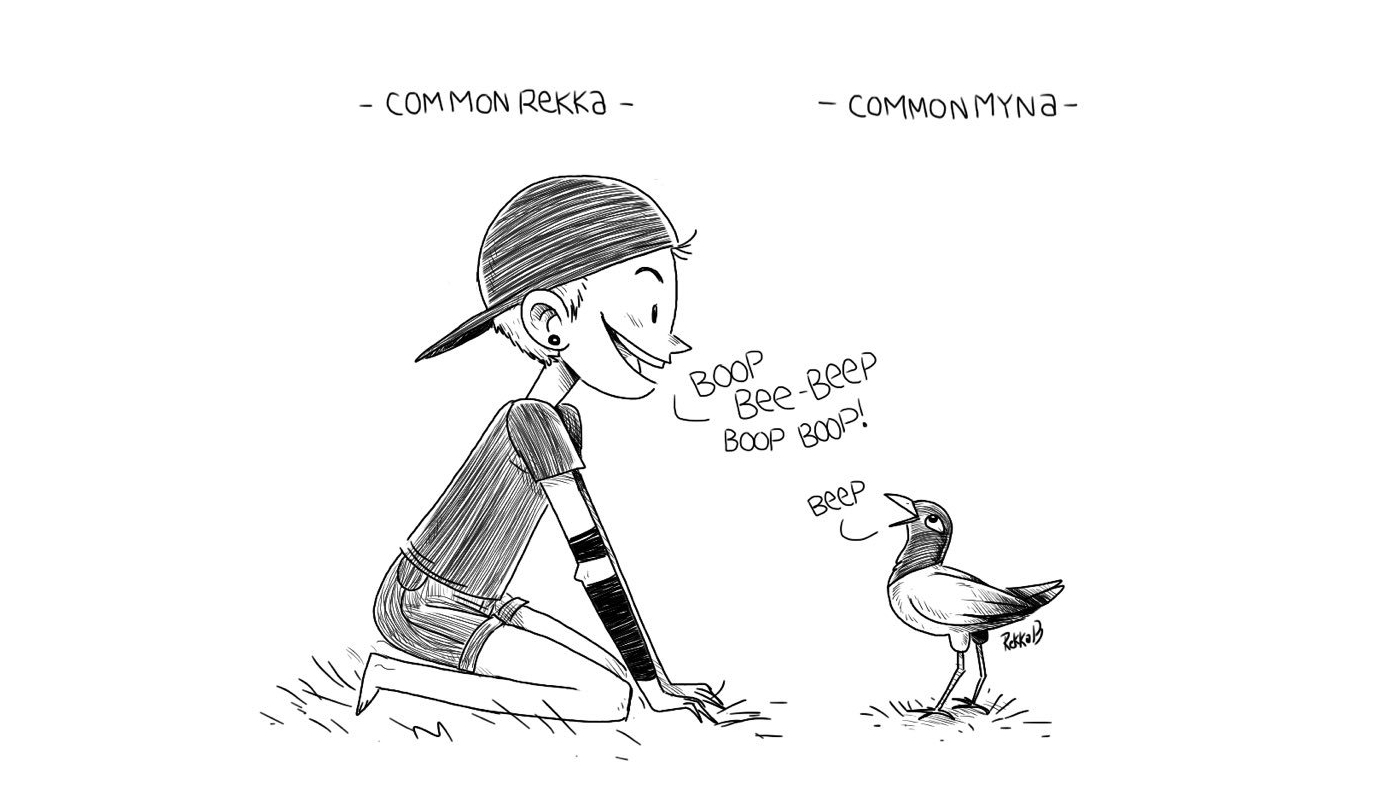 - COMMON Rekka -
- COMMON MYNa -
BOOP
Bee-Beep
BOOP BOOP!
Beep
RekkaB